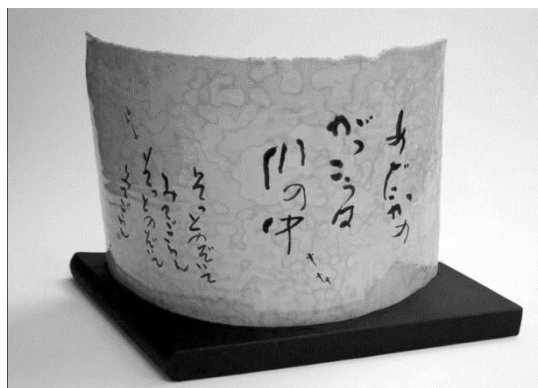 めだかの
がっこうは
川の中
そっとのぞいて
みてごらん
そっとのぞいて
みてごらん